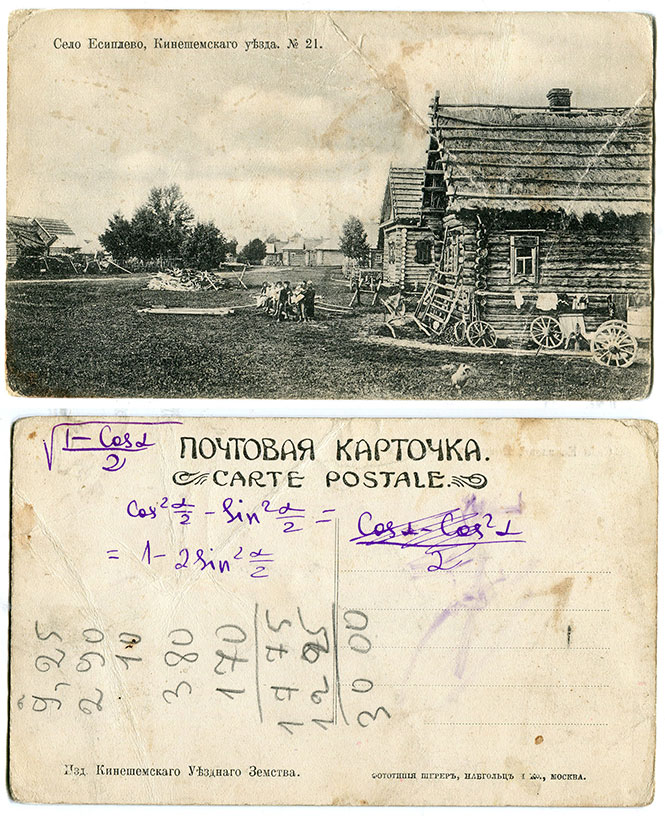 Село Есиплево, Кинешемскаго уѣзда. № 21.
√(1-Cosα)/2
ПОЧТОВАЯ КАРТОЧКА.
CARTE POSTALE.
Cos² α/2 - Sin² α/2 =
Cosα - Cos²α / 2
= 1 - 2Sin² α/2
9,25
2 90
10
3 80
1 70
17 75
30 00
Изд. Кинешемскаго Уѣзднаго Земства.
ФОТОТИПІЯ ШЕРЕРЪ, НАБГОЛЬЦЪ И КО., МОСКВА.